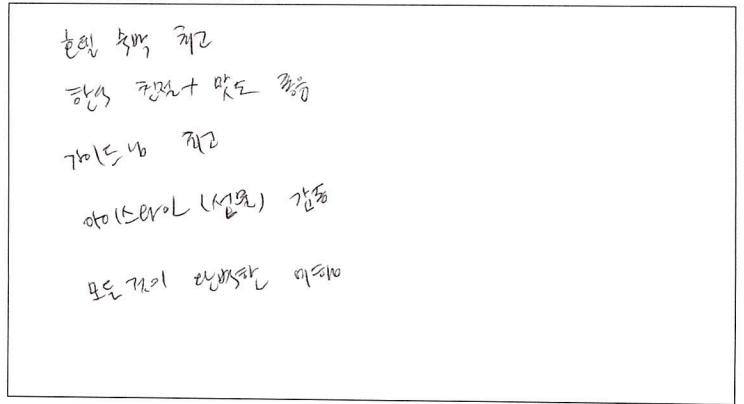 호텔 숙박 최고
한식 친절+ 맛도 좋음
가이드님 최고
아이스와인 (선물) 감동
모든것이 완벽한 여행